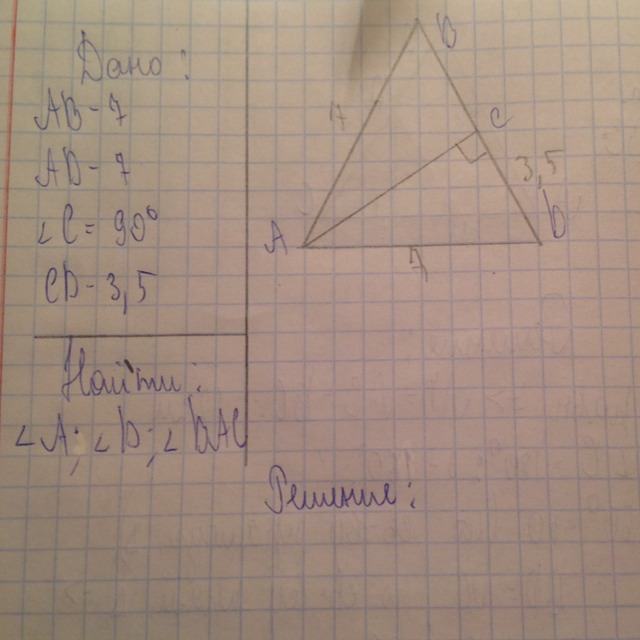 Дано:
AB - 7
AD - 7
∠C = 90°
CD - 3,5
Найти:
∠A; ∠D; ∠DAC
B
7
C
3,5
A
D
7
Решение: